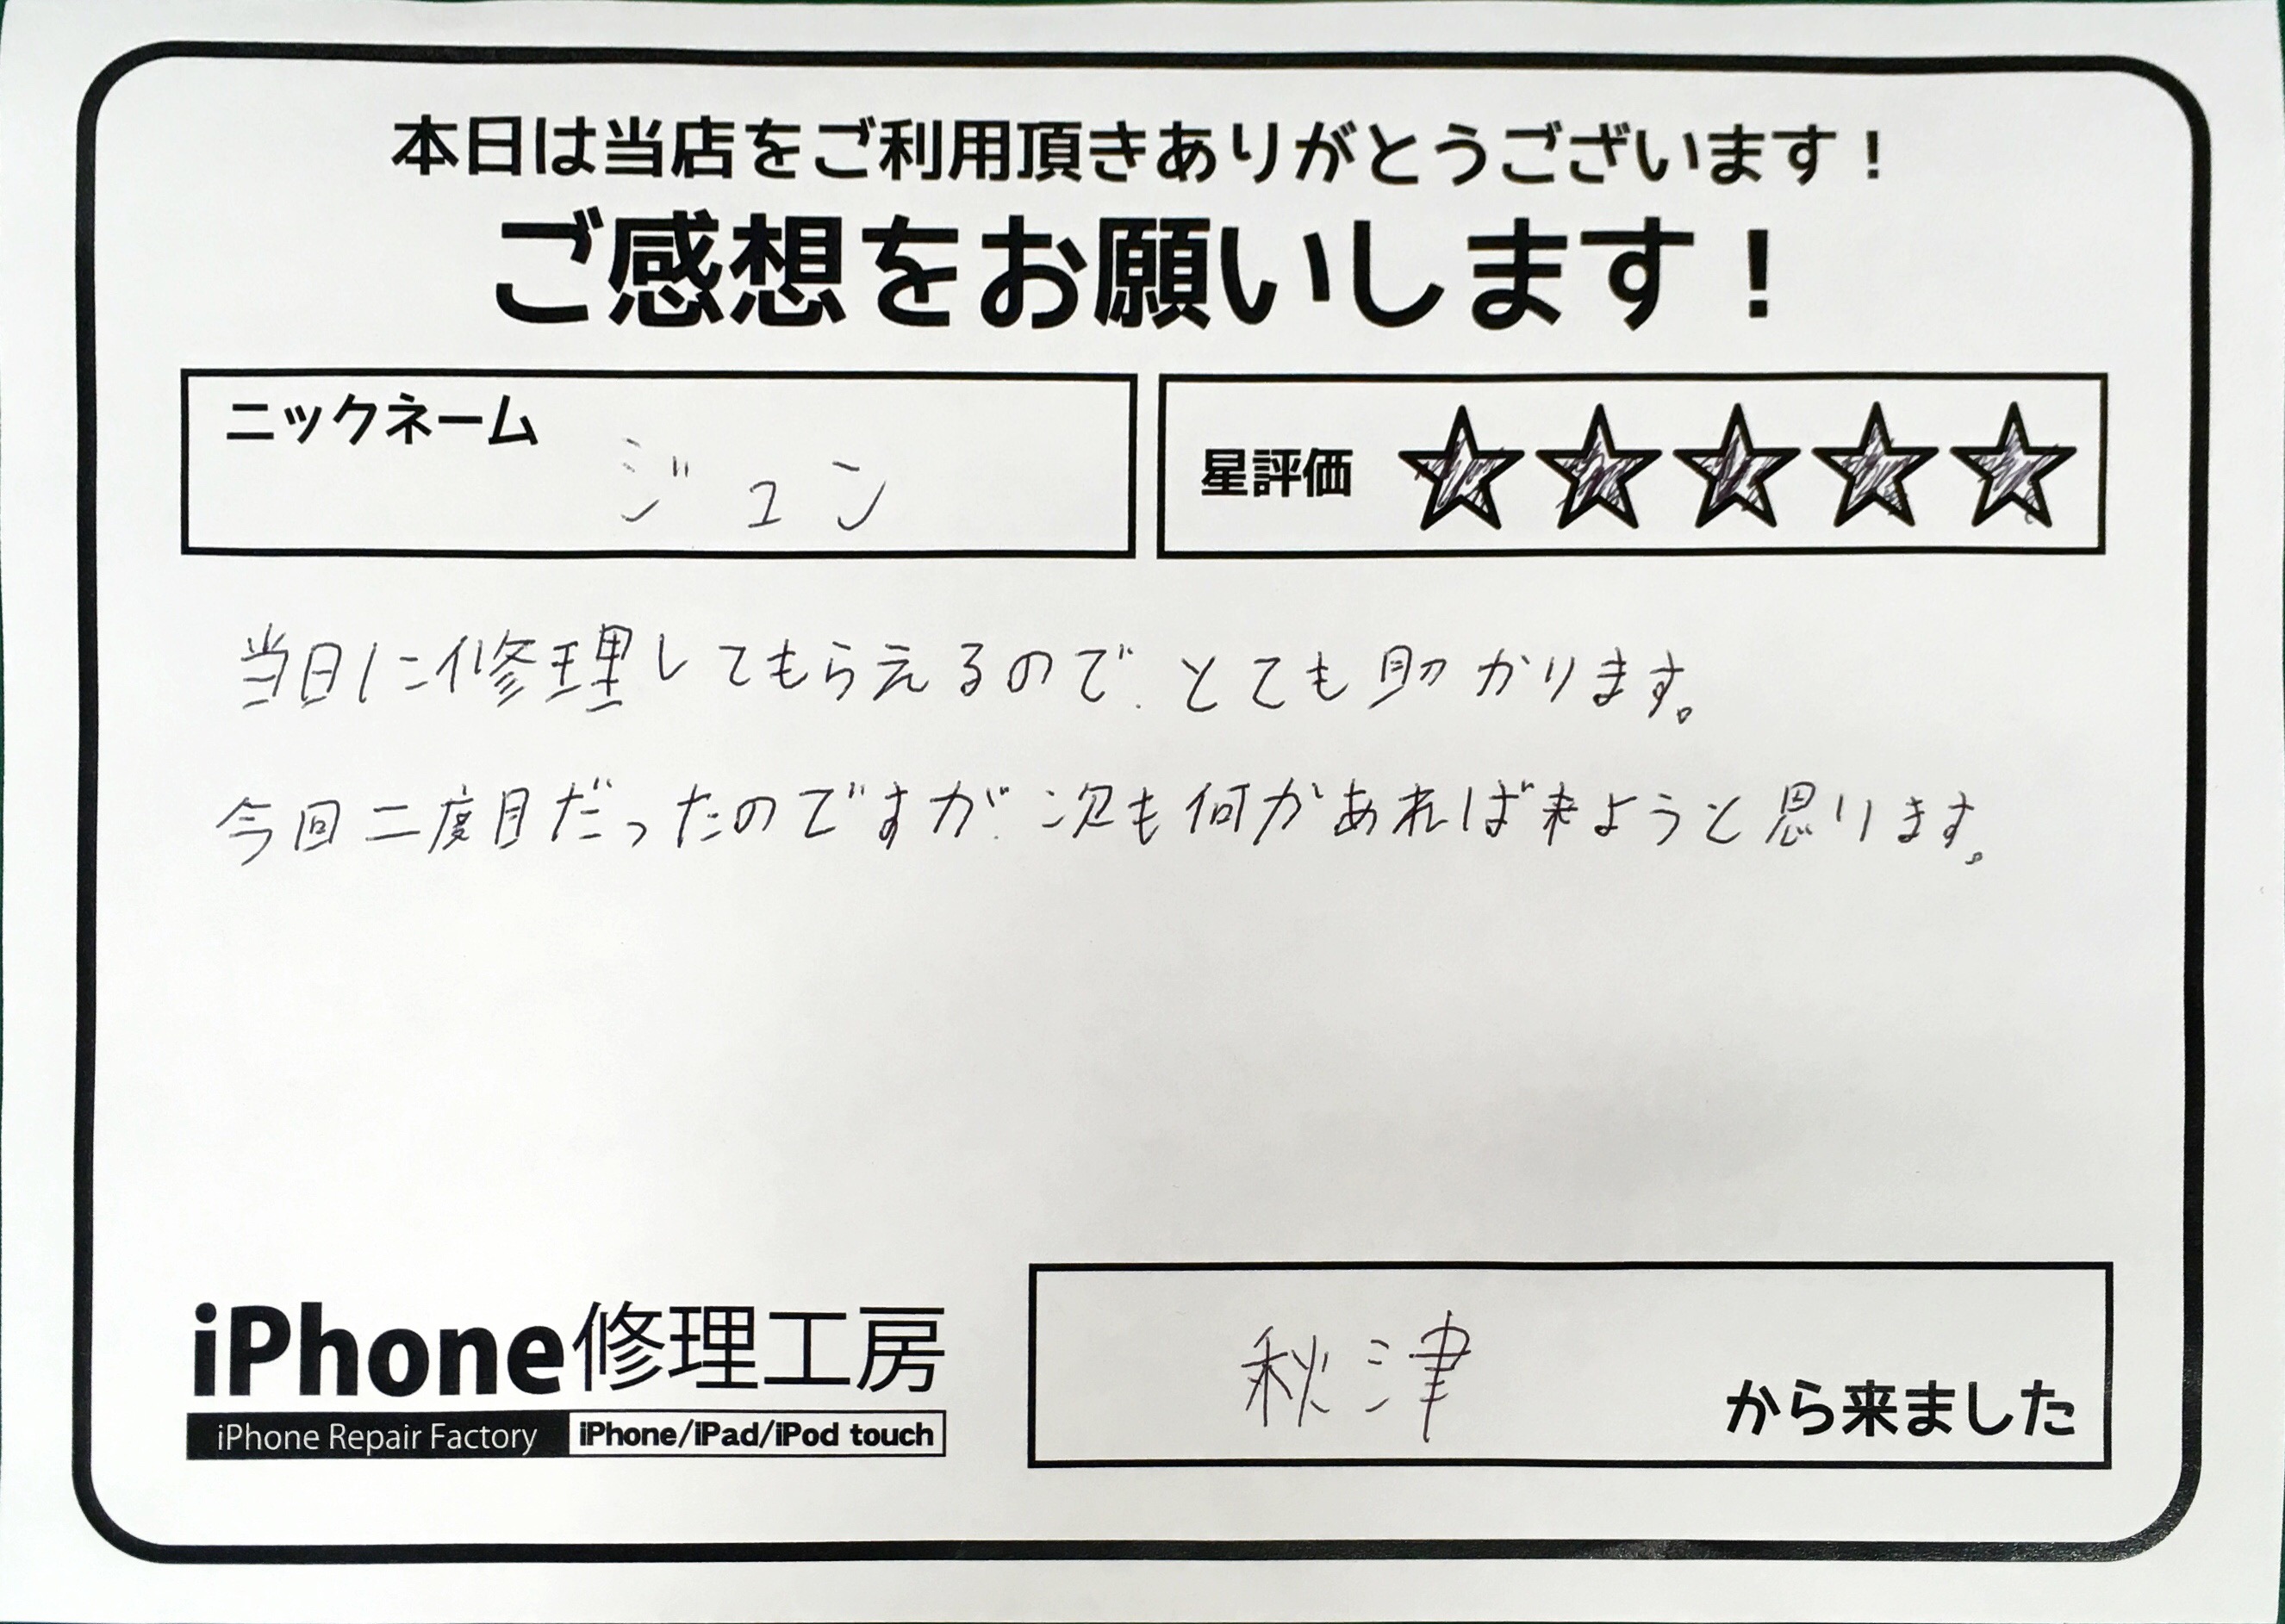 本日は当店をご利用頂きありがとうございます！
ご感想をお願いします！
ニックネーム
ジュン
星評価 ★★★★★
当日に修理してもらえるので、とても助かります。
今回二度目だったのですが、次も何かあれば来ようと思います。
iPhone修理工房
iPhone Repair Factory iPhone/iPad/iPod touch
秋津
から来ました